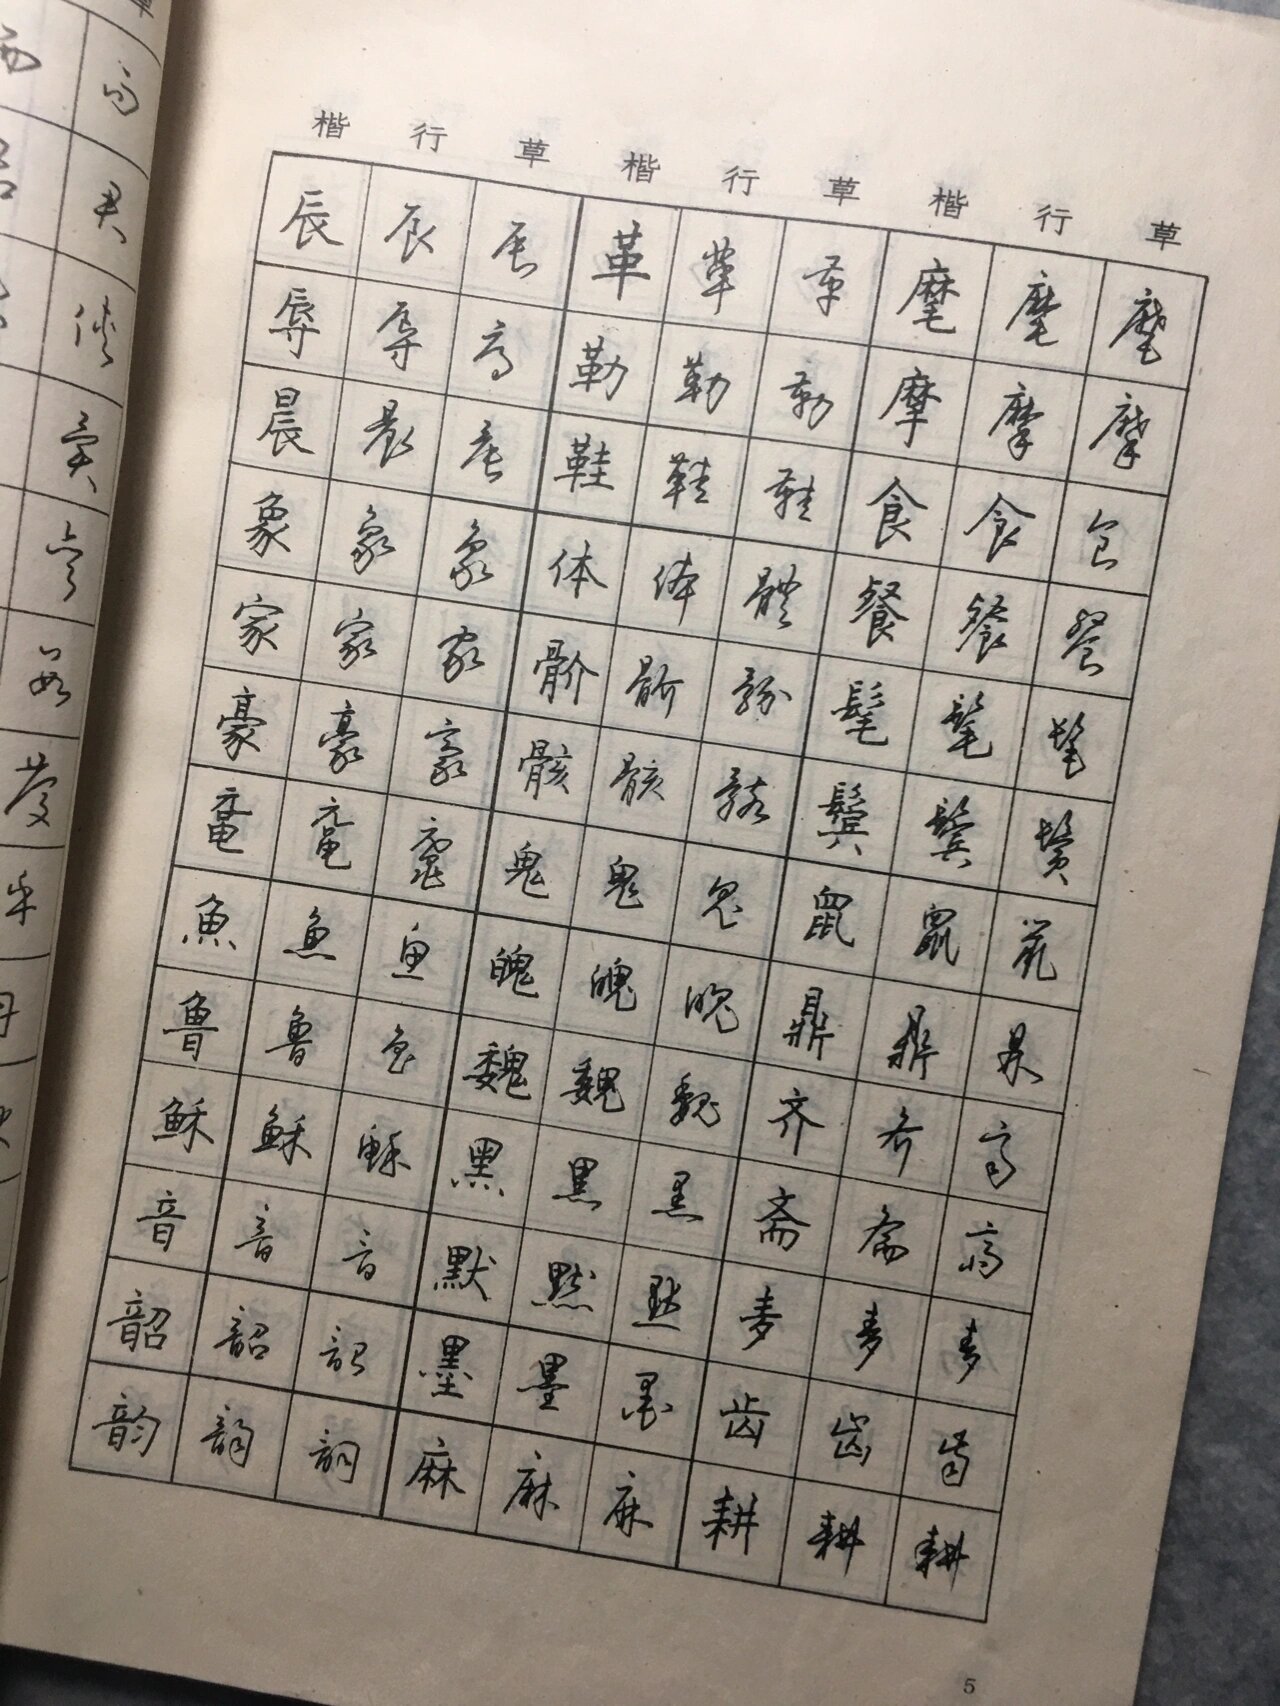 楷 行 草 楷 行 草 楷 行 草
辰 辰 辰 革 革 革 麾 麾 麾
辱 辱 辱 勒 勒 勒 摩 摩 摩
晨 晨 晨 鞋 鞋 鞋 食 食 食
象 象 象 体 体 體 餐 餐 餐
家 家 家 骱 骱 骱 髦 髦 髦
豪 豪 豪 骸 骸 骸 鬓 鬓 鬓
鼋 鼋 鼋 鬼 鬼 鬼 鼠 鼠 鼠
魚 魚 魚 魄 魄 魄 鼎 鼎 鼎
魯 魯 魯 魏 魏 魏 齐 齐 齐
稣 稣 稣 黑 黑 黑 斋 斋 斋
音 音 音 默 默 默 麦 麦 麦
韶 韶 韶 墨 墨 墨 齿 齿 齿
韵 韵 韵 麻 麻 麻 耕 耕 耕
5